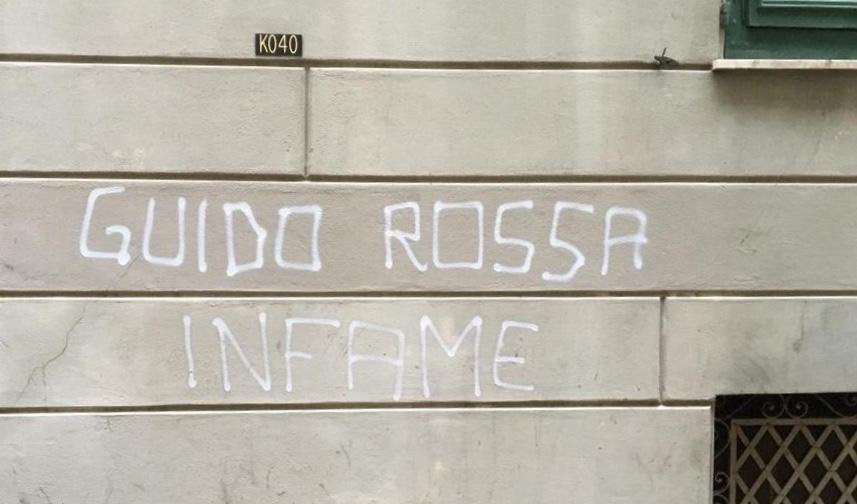 K040
GUIDO ROSSA
INFAME